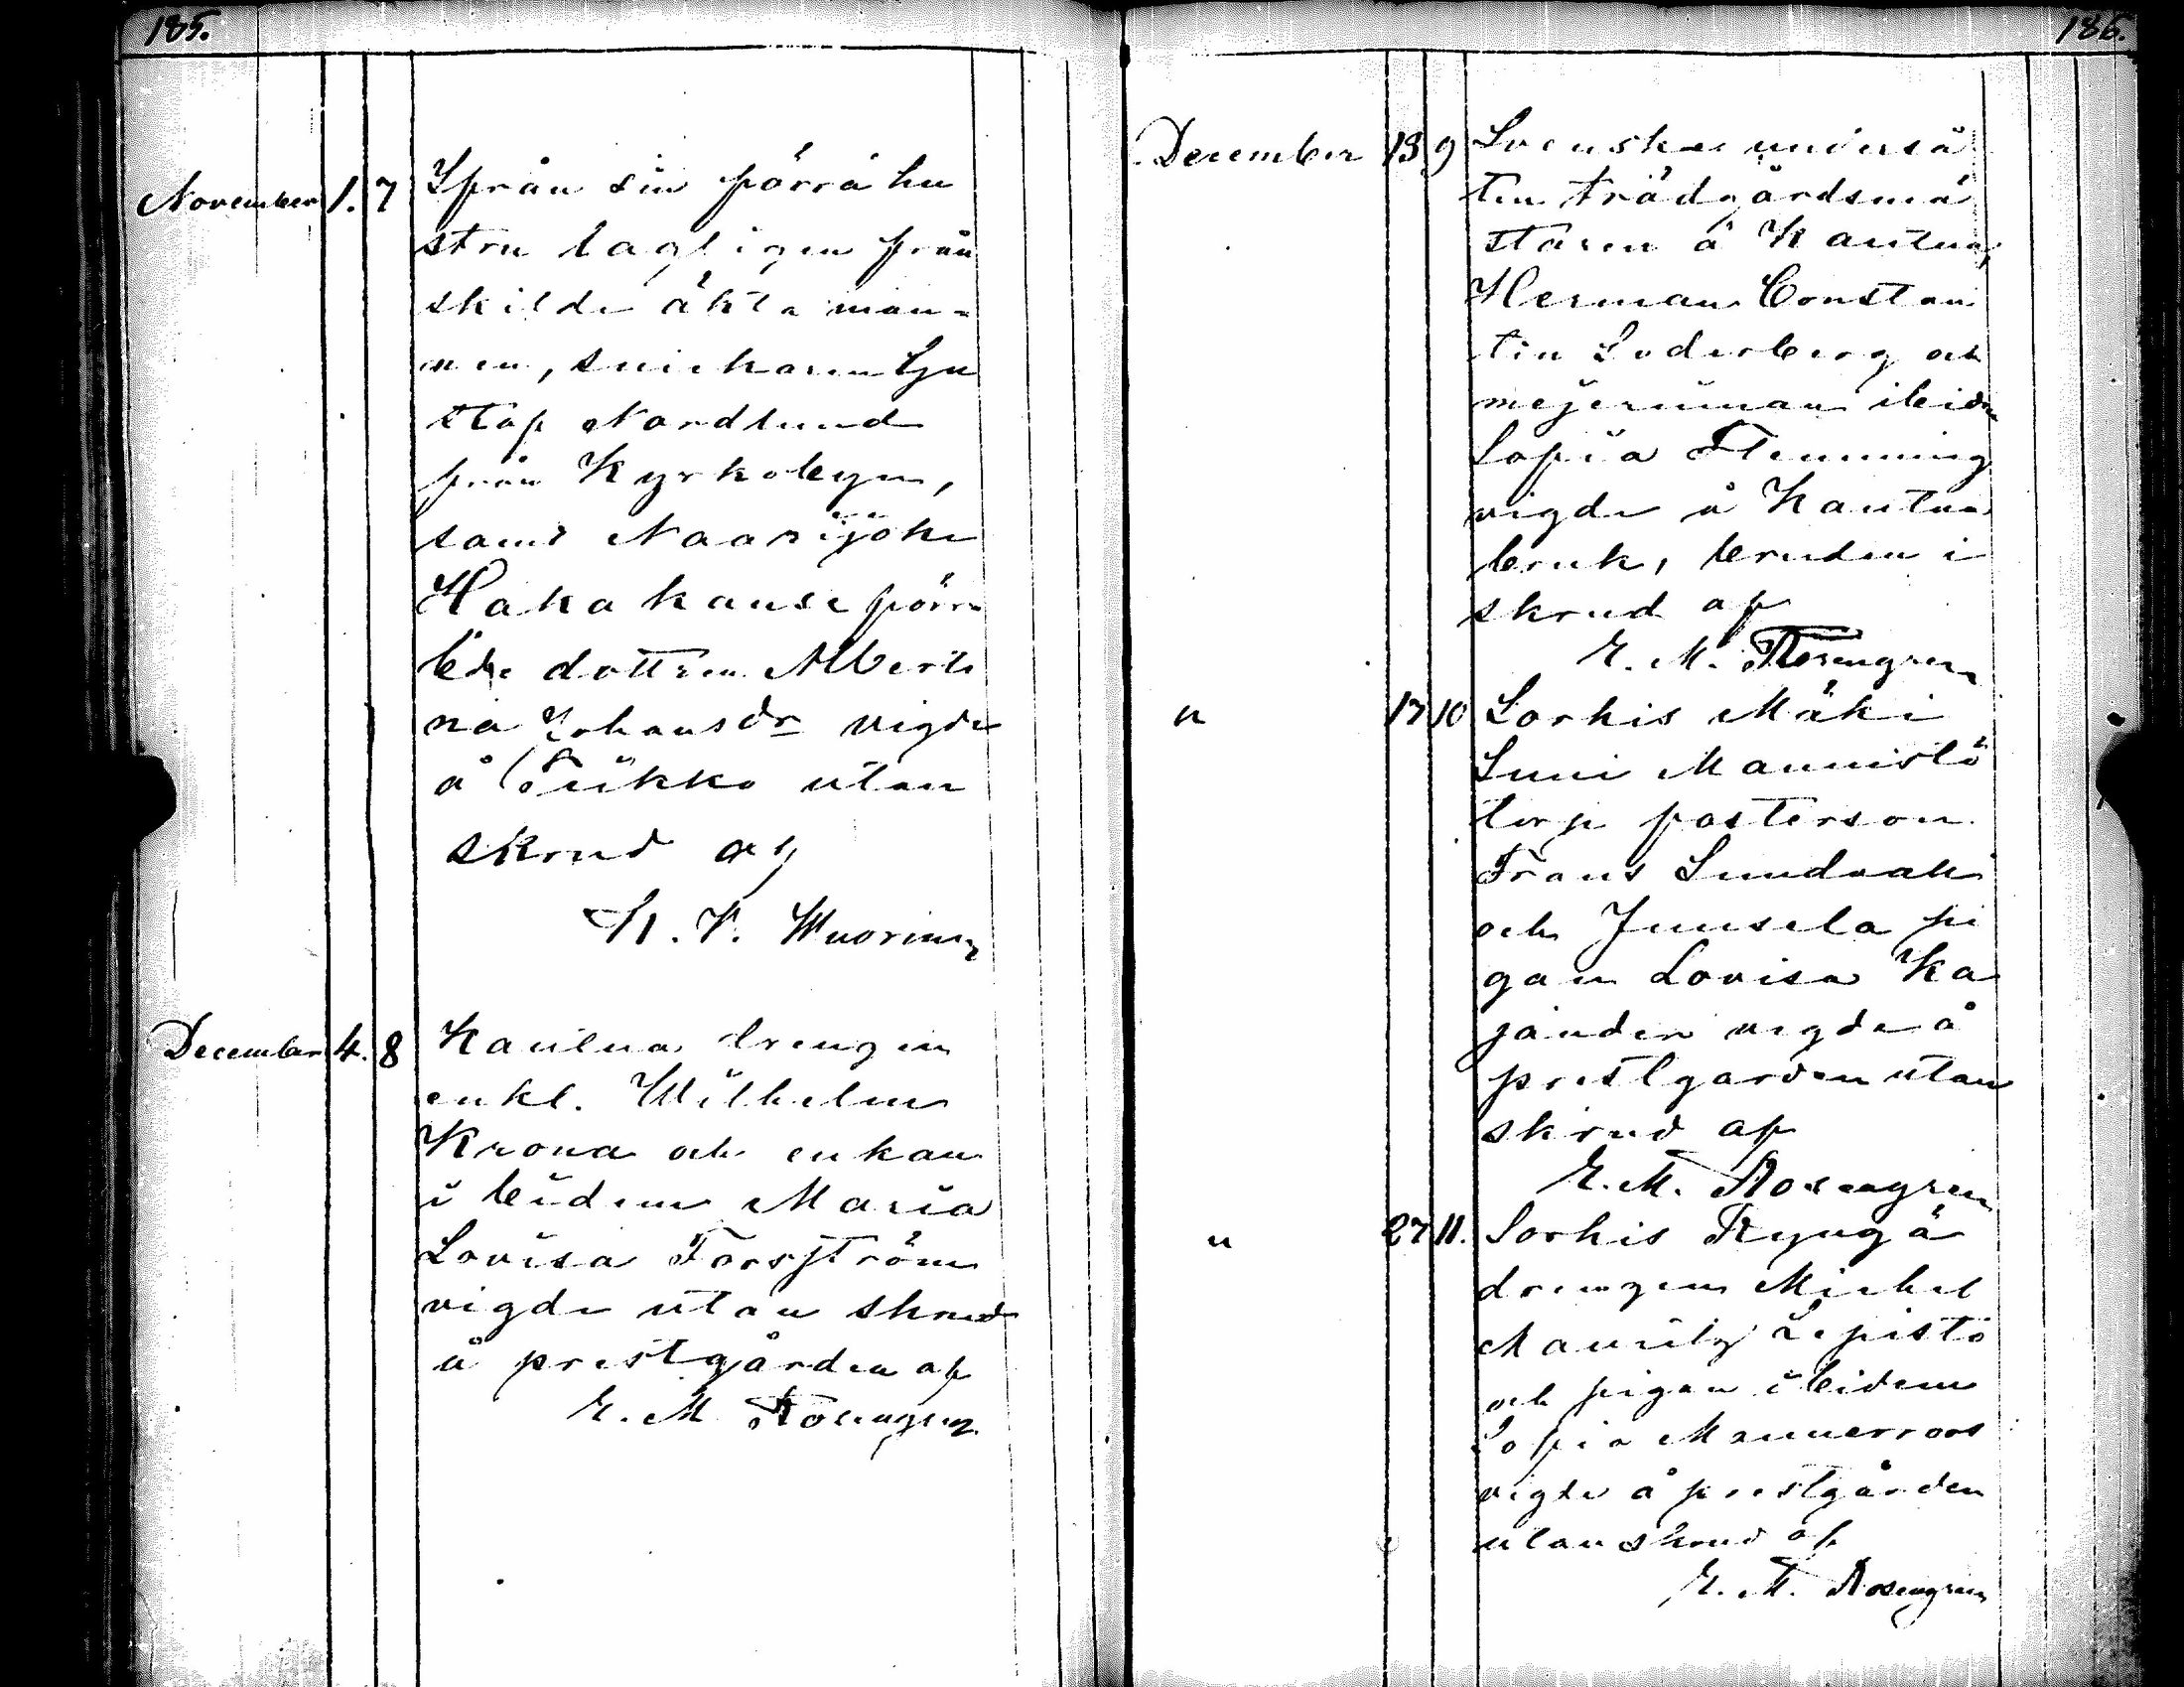 185.
November 1. 7 Ifrån sin förra hu
stru lagligen från
skilde äkta man-
nen, snickaren Gu
staf Nordlund
från Kyrkobyn,
samt Naarijoki
Haka kansi förra
bde dottren Alberti
na Johansdr vigde
å Tiikko utan
skrud af
K. V. Wuorinen
December 4. 8 Kautua drengen
enkl. Wilhelm
Krona och enkan
ibidem Maria
Lovisa Forsström
vigde utan skrud
å prestgården af
E. M. Rosengren
186.
December 13 9 Svenske underså
ten trädgårdsmä
staren å Kautua,
Herman Constan
tin Söderberg och
mejerinnan ibidem
Sofia Flemming
vigde å Kautua
bruk, bruden i
skrud af
E. M. Rosengren
" 17 10 Sorkis Mäki
Suni Mannistö
torp fosterson
Frans Sundvall
och Juusela pi
gan Lovisa Ka
jander vigde å
prestgården utan
skrud af
E. M. Rosengren
" 27 11. Sorkis Ryngä
drengen Michel
Mauritz Lepistö
och pigan ibidem
Sofia Mannerroos
vigde å prestgården
utan skrud af
E. M. Rosengren